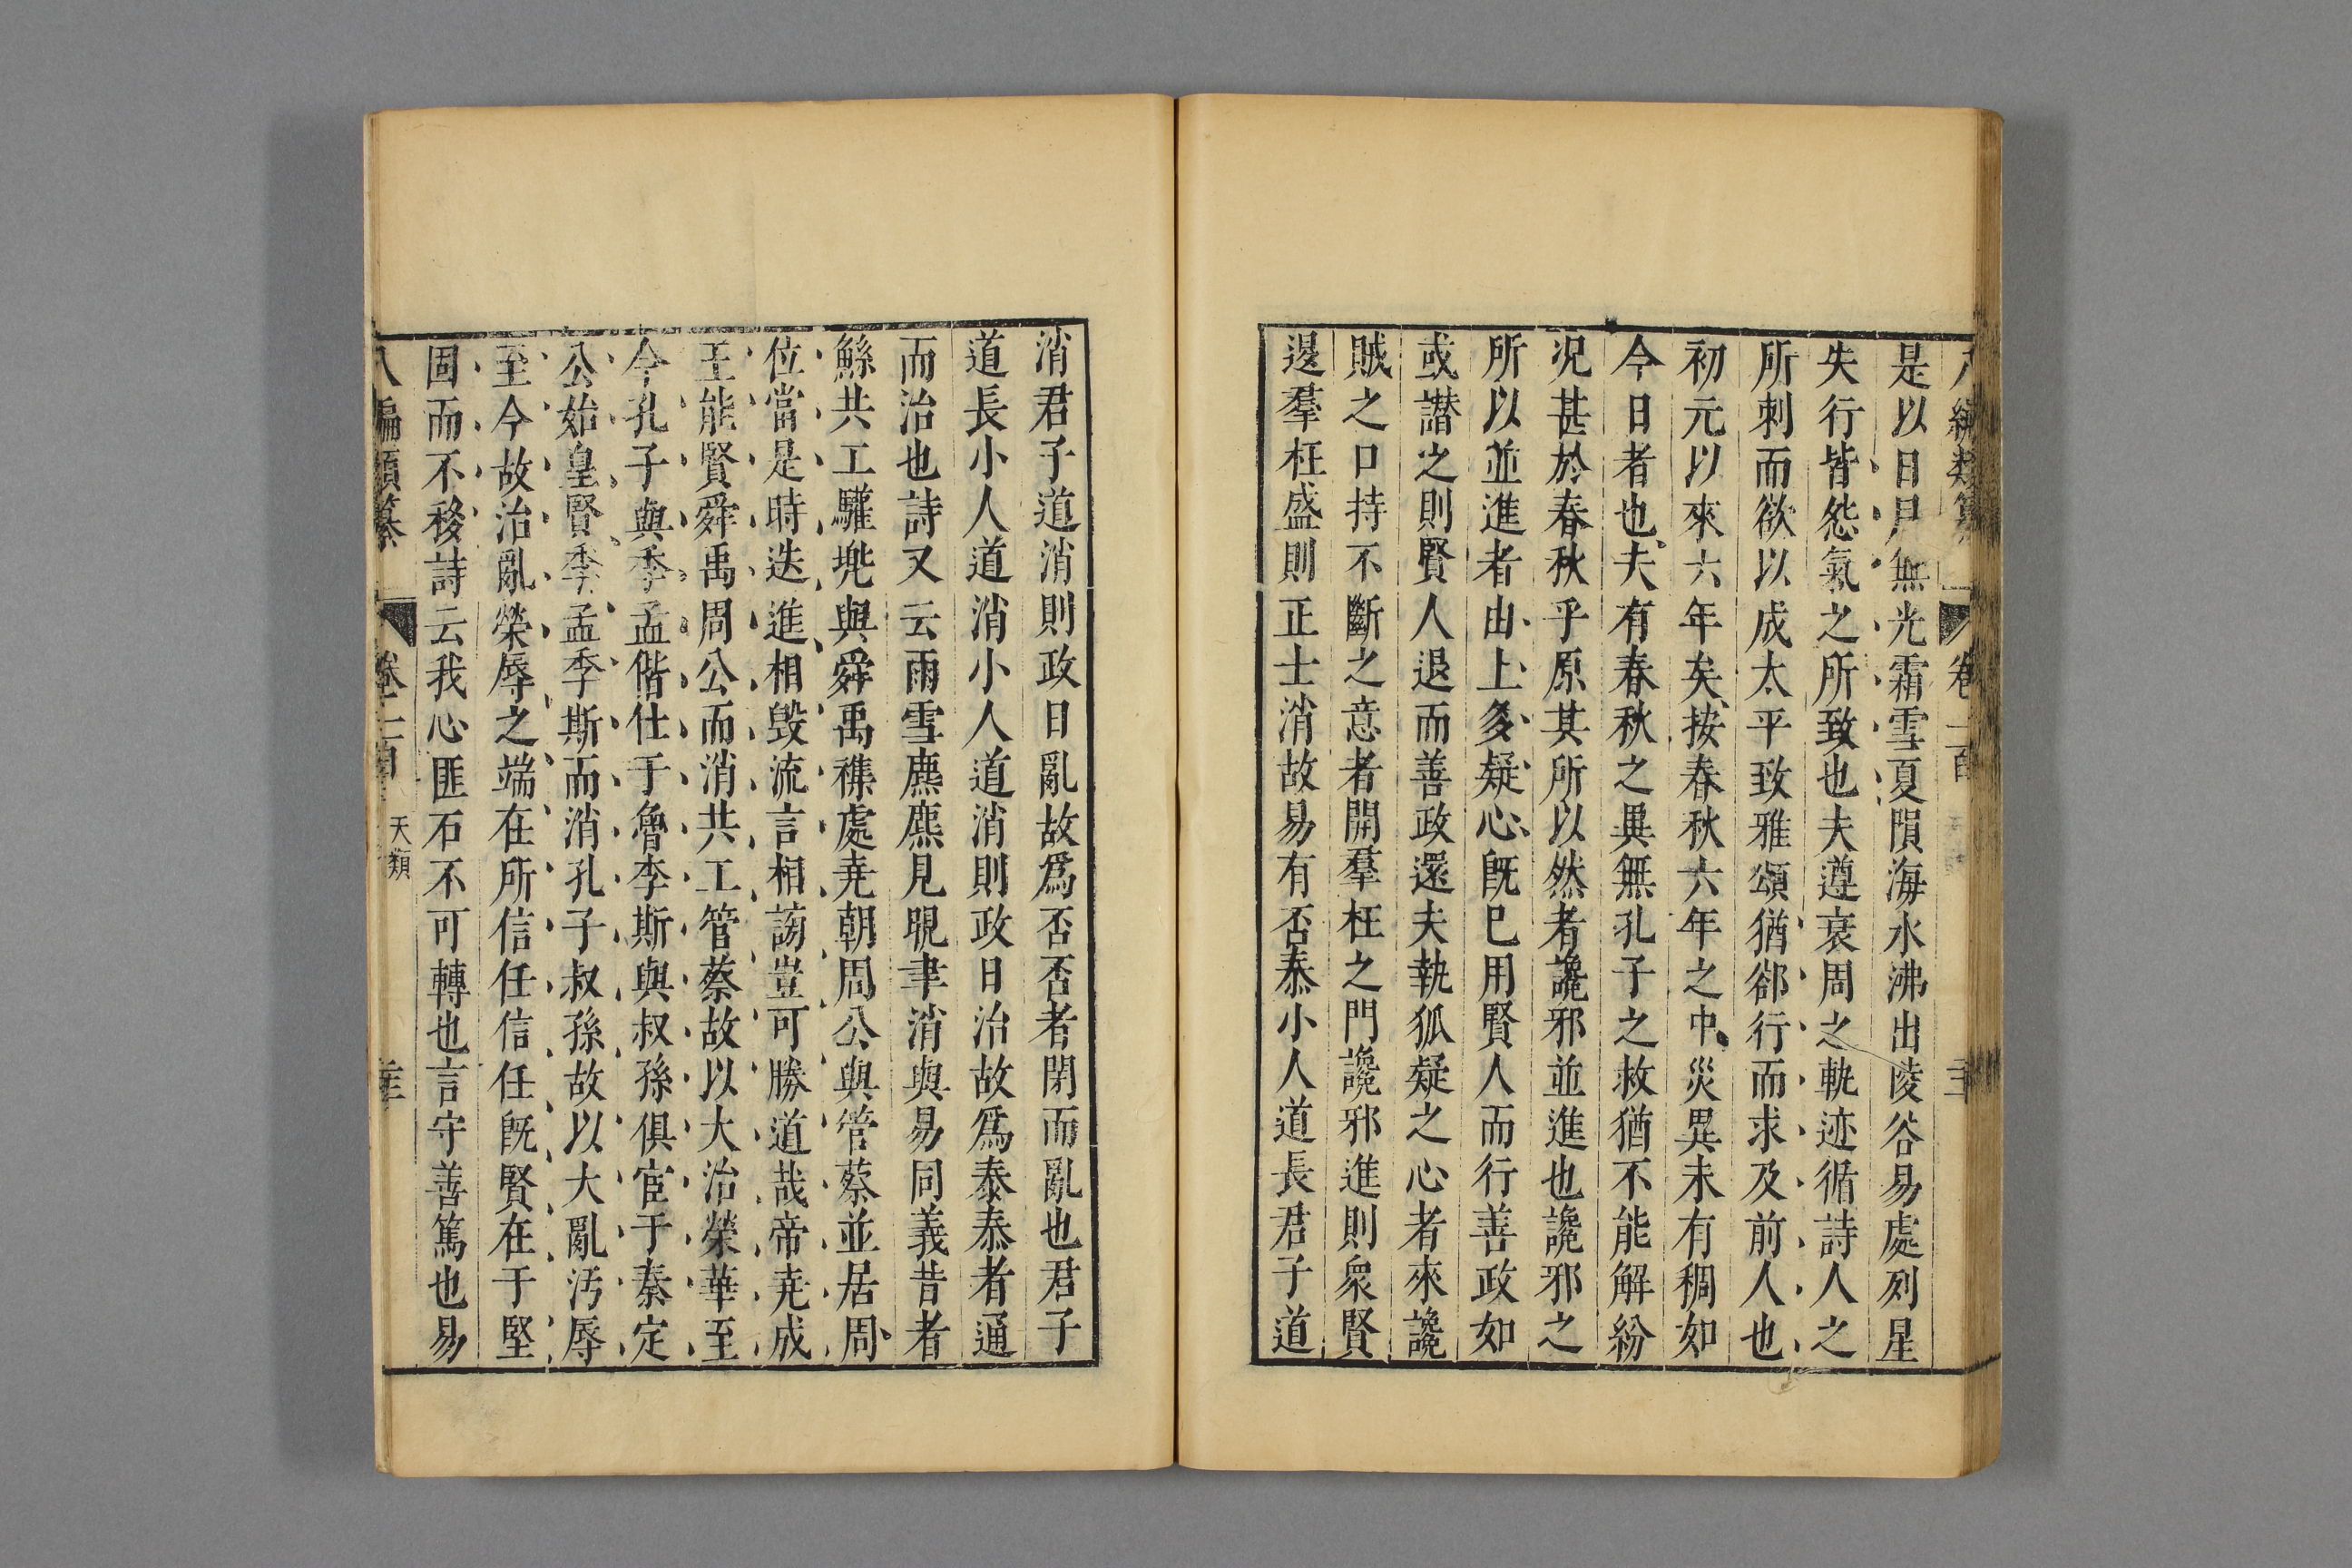 八編類纂 卷一百 三十
是以日月無光霜雪夏隕海水沸出陵谷易處列星
失行皆怨氣之所致也夫遵衰周之軌迹循詩人之
所刺而欲以成太平致雅頌猶郤行而求及前人也
初元以來六年矣按春秋六年之中災異未有稠如
今日者也夫有春秋之異無孔子之救猶不能解紛
況甚於春秋乎原其所以然者讒邪並進也讒邪之
所以並進者由上多疑心既已用賢人而行善政如
或譖之則賢人退而善政還夫執狐疑之心者來讒
賊之口持不斷之意者開羣枉之門讒邪進則衆賢
退羣枉盛則正士消故易有否泰小人道長君子道
消君子道消則政日亂故爲否否者閉而亂也君子
道長小人道消小人道消則政日治故爲泰泰者通
而治也詩又云雨雪麃麃見晛聿消與易同義昔者
鯀共工驩兜與舜禹雜處堯朝周公與管蔡並居周
位當是時迭進相毀流言相謗豈可勝道哉帝堯成
王能賢舜禹周公而消共工管蔡故以大治榮華至
今孔子與季孟偕仕于魯李斯與叔孫俱宦于秦定
公始皇賢季孟李斯而消孔子叔孫故以大亂汚辱
至今故治亂榮辱之端在所信任信任既賢在于堅
固而不移詩云我心匪石不可轉也言守善篤也易
八編類纂 卷一百 天類